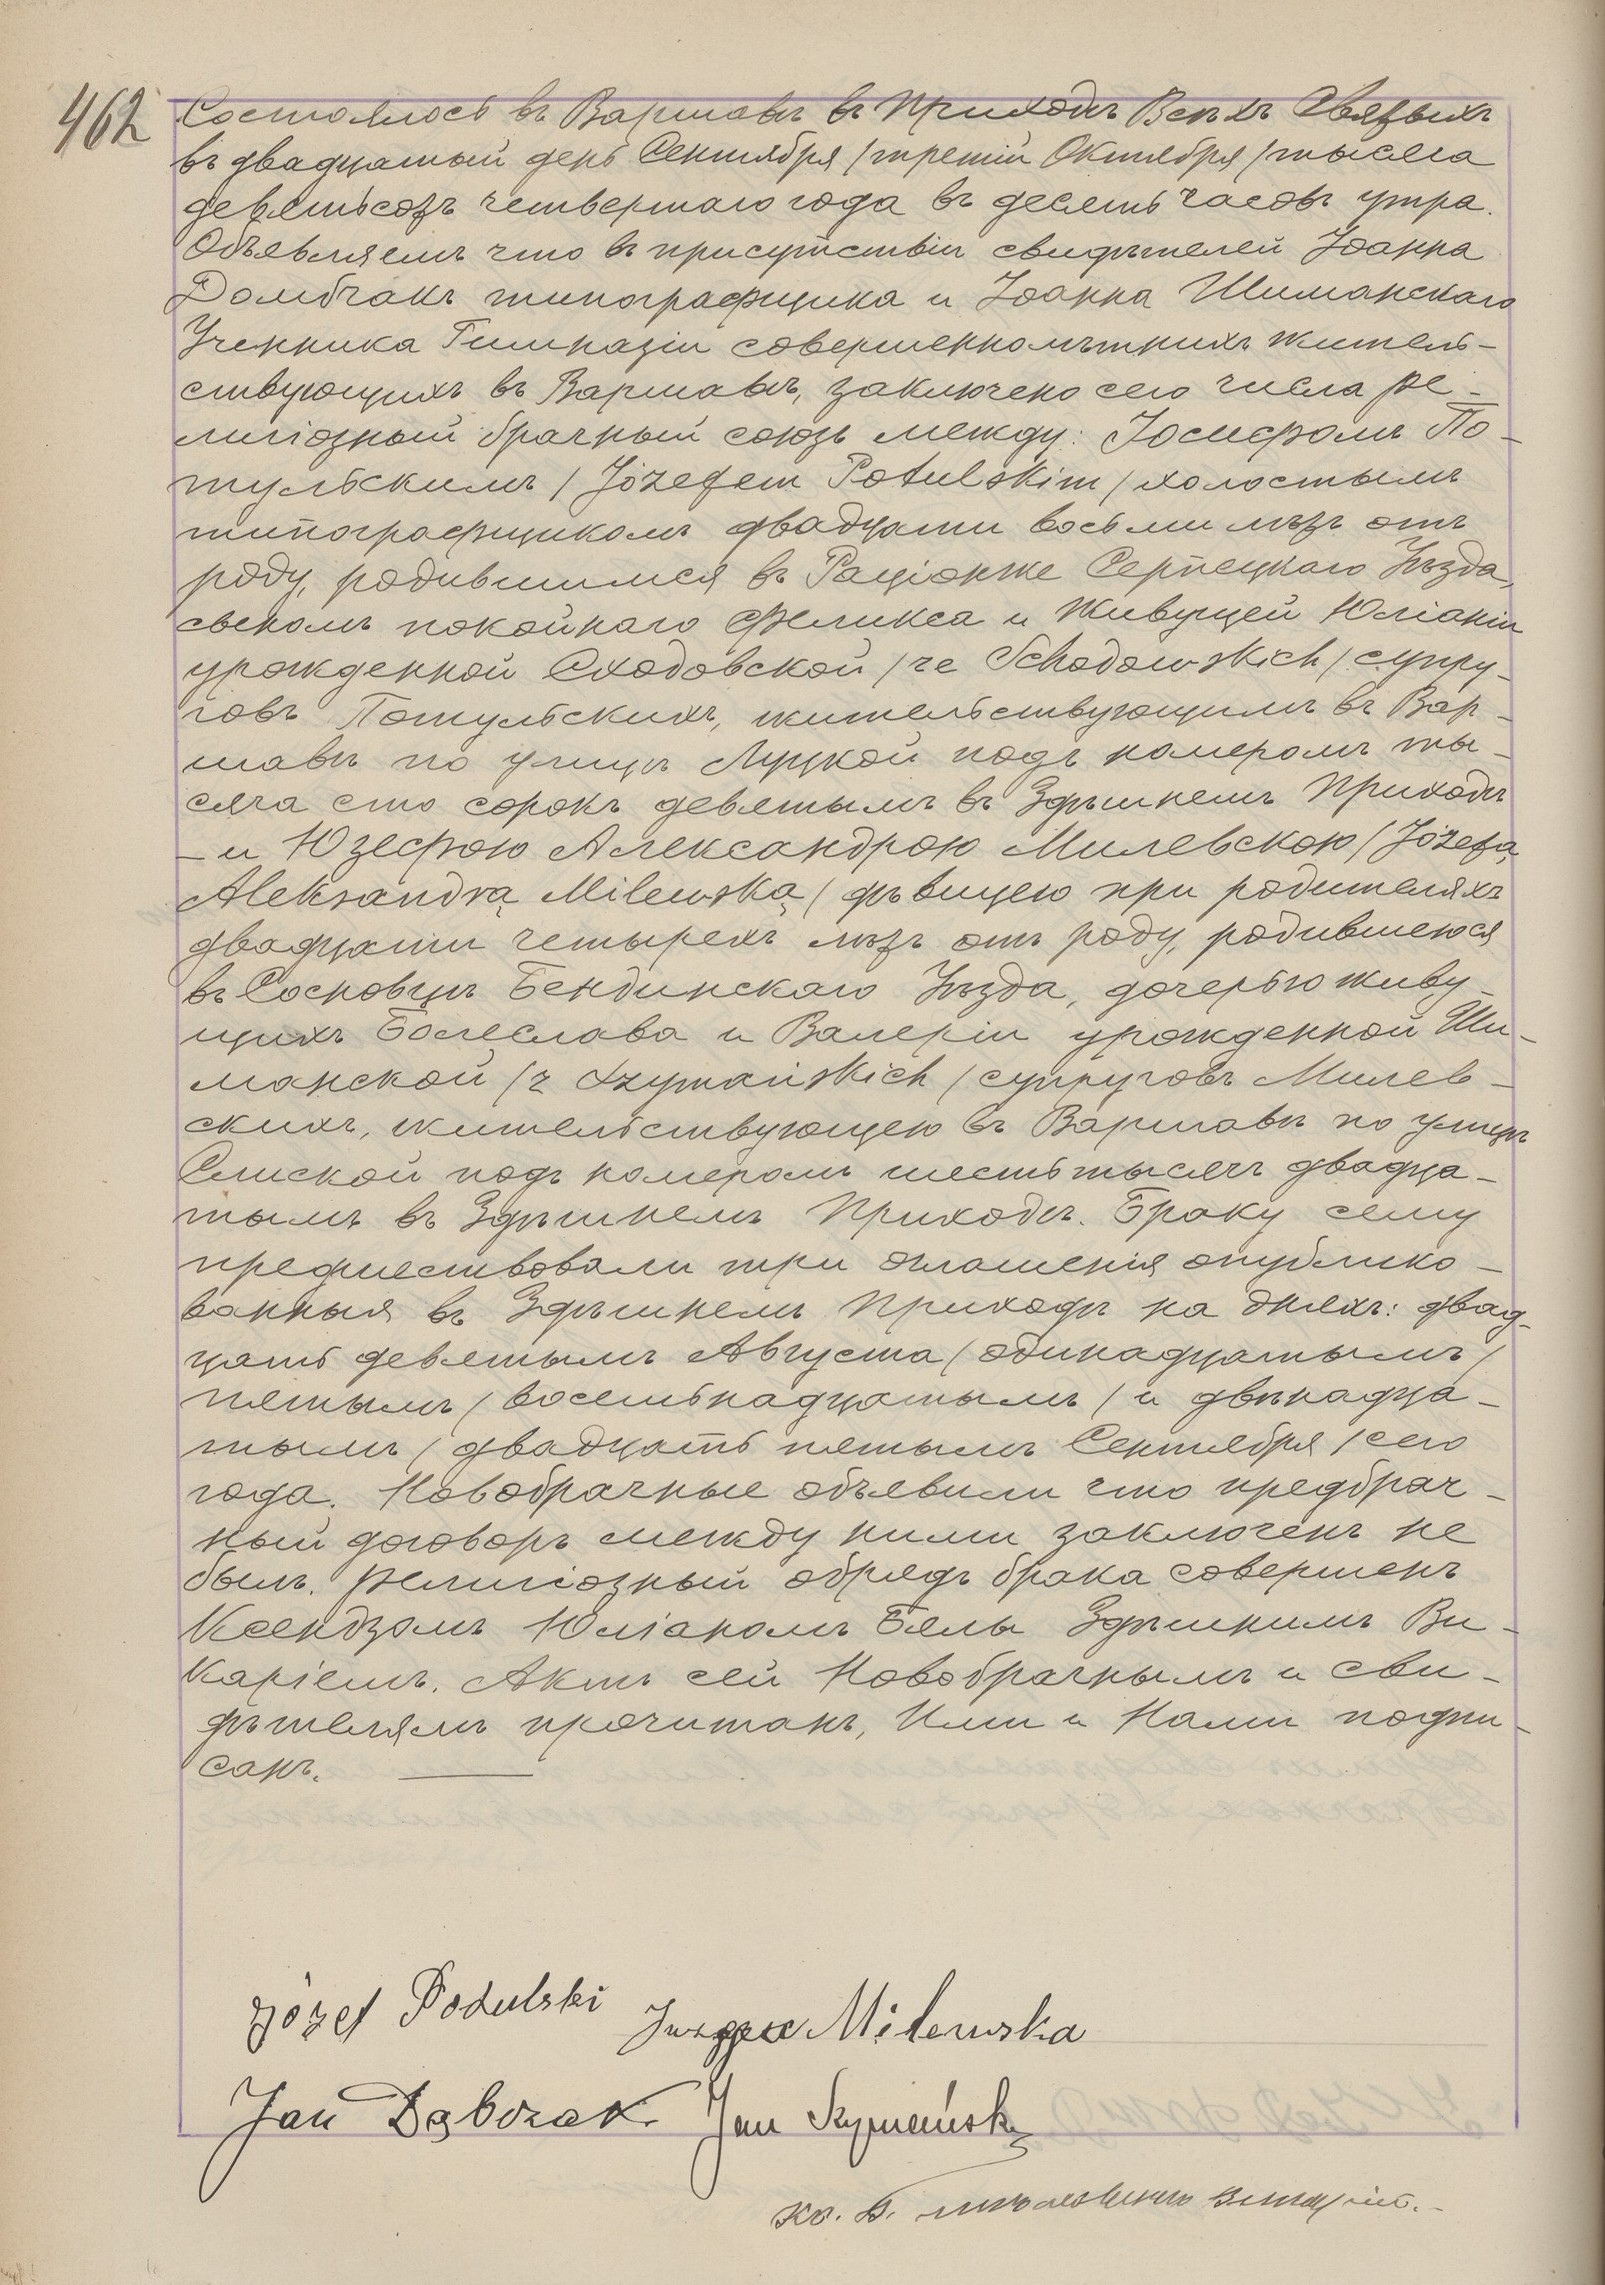 462
Состоялось въ Варшавѣ въ Приходѣ Всѣхъ Святыхъ
въ двадцатый день Сентября /третій Октября/ тысяча
девятьсотъ четвертаго года въ десять часовъ утра.
Объявляемъ что въ присутствіи свидѣтелей Іоанна
Домбчакъ типографщика и Іоанна Шиманскаго
Ученника Гимназіи совершеннолѣтнихъ житель-
ствующихъ въ Варшавѣ, заключено сего числа ре-
лигіозный брачный союзъ между: Іосифомъ По-
тульскимъ /Józefem Potulskim/ холостымъ
типографщикомъ двадцати восьми лѣтъ отъ
роду, родившимся въ Раціонже Серпецкаго Уѣзда,
сыномъ покойнаго Феликса и Живущей Юліаніи
урожденной Сходовской /ze Schodowskich/ супру-
говъ Потульскихъ, жительствующимъ въ Вар-
шавѣ по улицѣ Луцкой подъ номеромъ ты-
сяча сто сорокъ девятымъ въ Здѣшнемъ Приходѣ
— и Юзефою Александрою Милевскою /Józefą
Aleksandrą Milewską/ дѣвицею при родителяхъ
двадцати четырехъ лѣтъ отъ роду, родившеюся
въ Сосновцѣ Бендинскаго Уѣзда, дочерью живу-
щихъ Болеслава и Валеріи урожденной Ши-
манской /z Szymańskich/ супруговъ Милев-
скихъ, жительствующею въ Варшавѣ по улицѣ
Слиской подъ номеромъ шесть тысячъ двадца-
тымъ въ Здѣшнемъ Приходѣ. Браку сему
предшествовали три оглашенія опублико-
ванныя въ Здѣшнемъ Приходѣ на дняхъ: двад-
цать девятымъ Августа /одинадцатымъ/
пятымъ /восемьнадцатымъ/ и двѣнадца-
тымъ /двадцать пятымъ Сентября/ сего
года. Новобрачные объявили что предбрач-
ный договоръ между ними заключенъ не
былъ. Религіозный обрядъ брака совершенъ
Ксендзомъ Юліаномъ Бялы Здѣшнимъ Ви-
каріемъ. Актъ сей Новобрачнымъ и сви-
дѣтелямъ прочитанъ, Ими и Нами подпи-
санъ.
Józef Potulski Józefa Milewska
Jan Dąbczak Jan Szymański
Кс. Б.